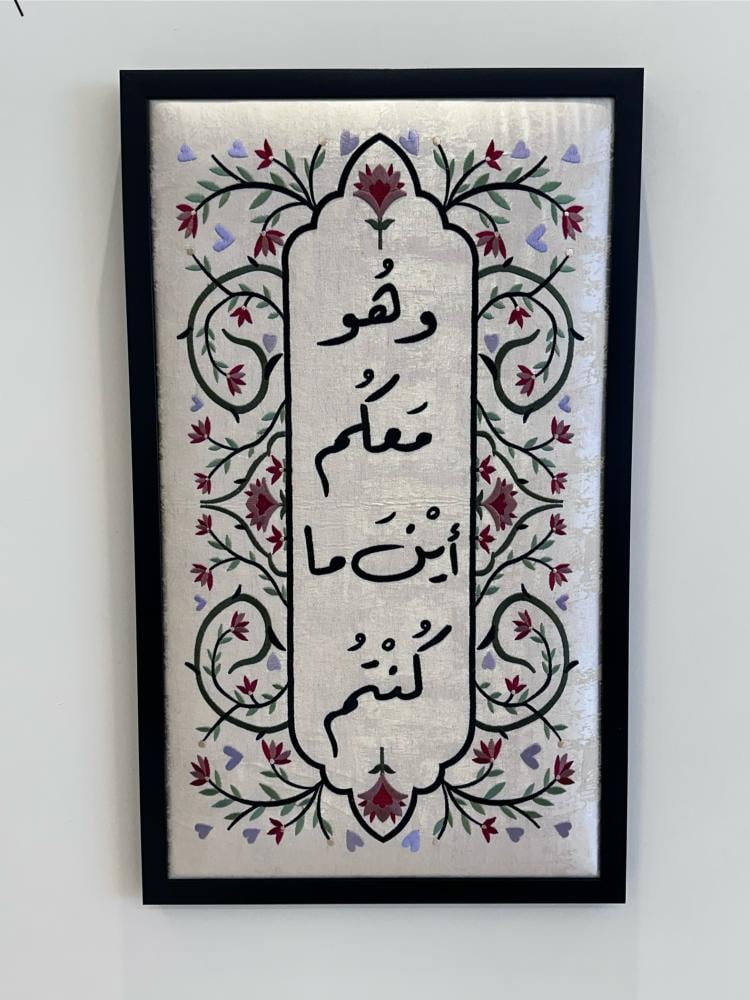 وهُو
مَعكُم
أيْنَ ما
كُنْتُم